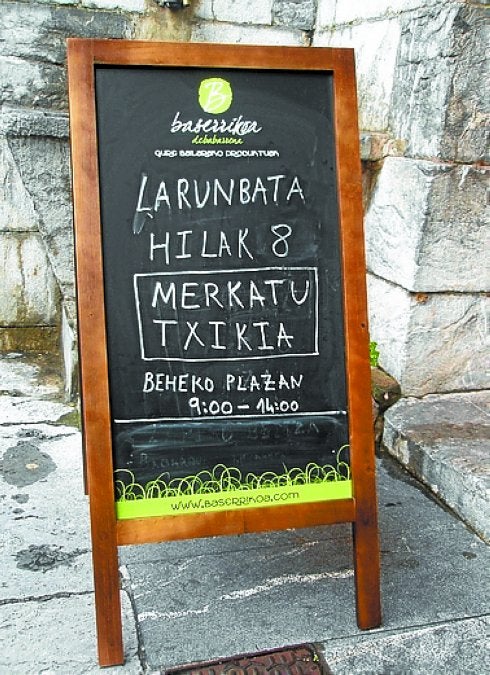 B
baserrikoa
debabarrena
GURE BAILARAKO PRODUKTUAK
LARUNBATA
HILAK 8
MERKATU
TXIKIA
BEHEKO PLAZAN
9:00 - 14:00
www.baserrikoa.com